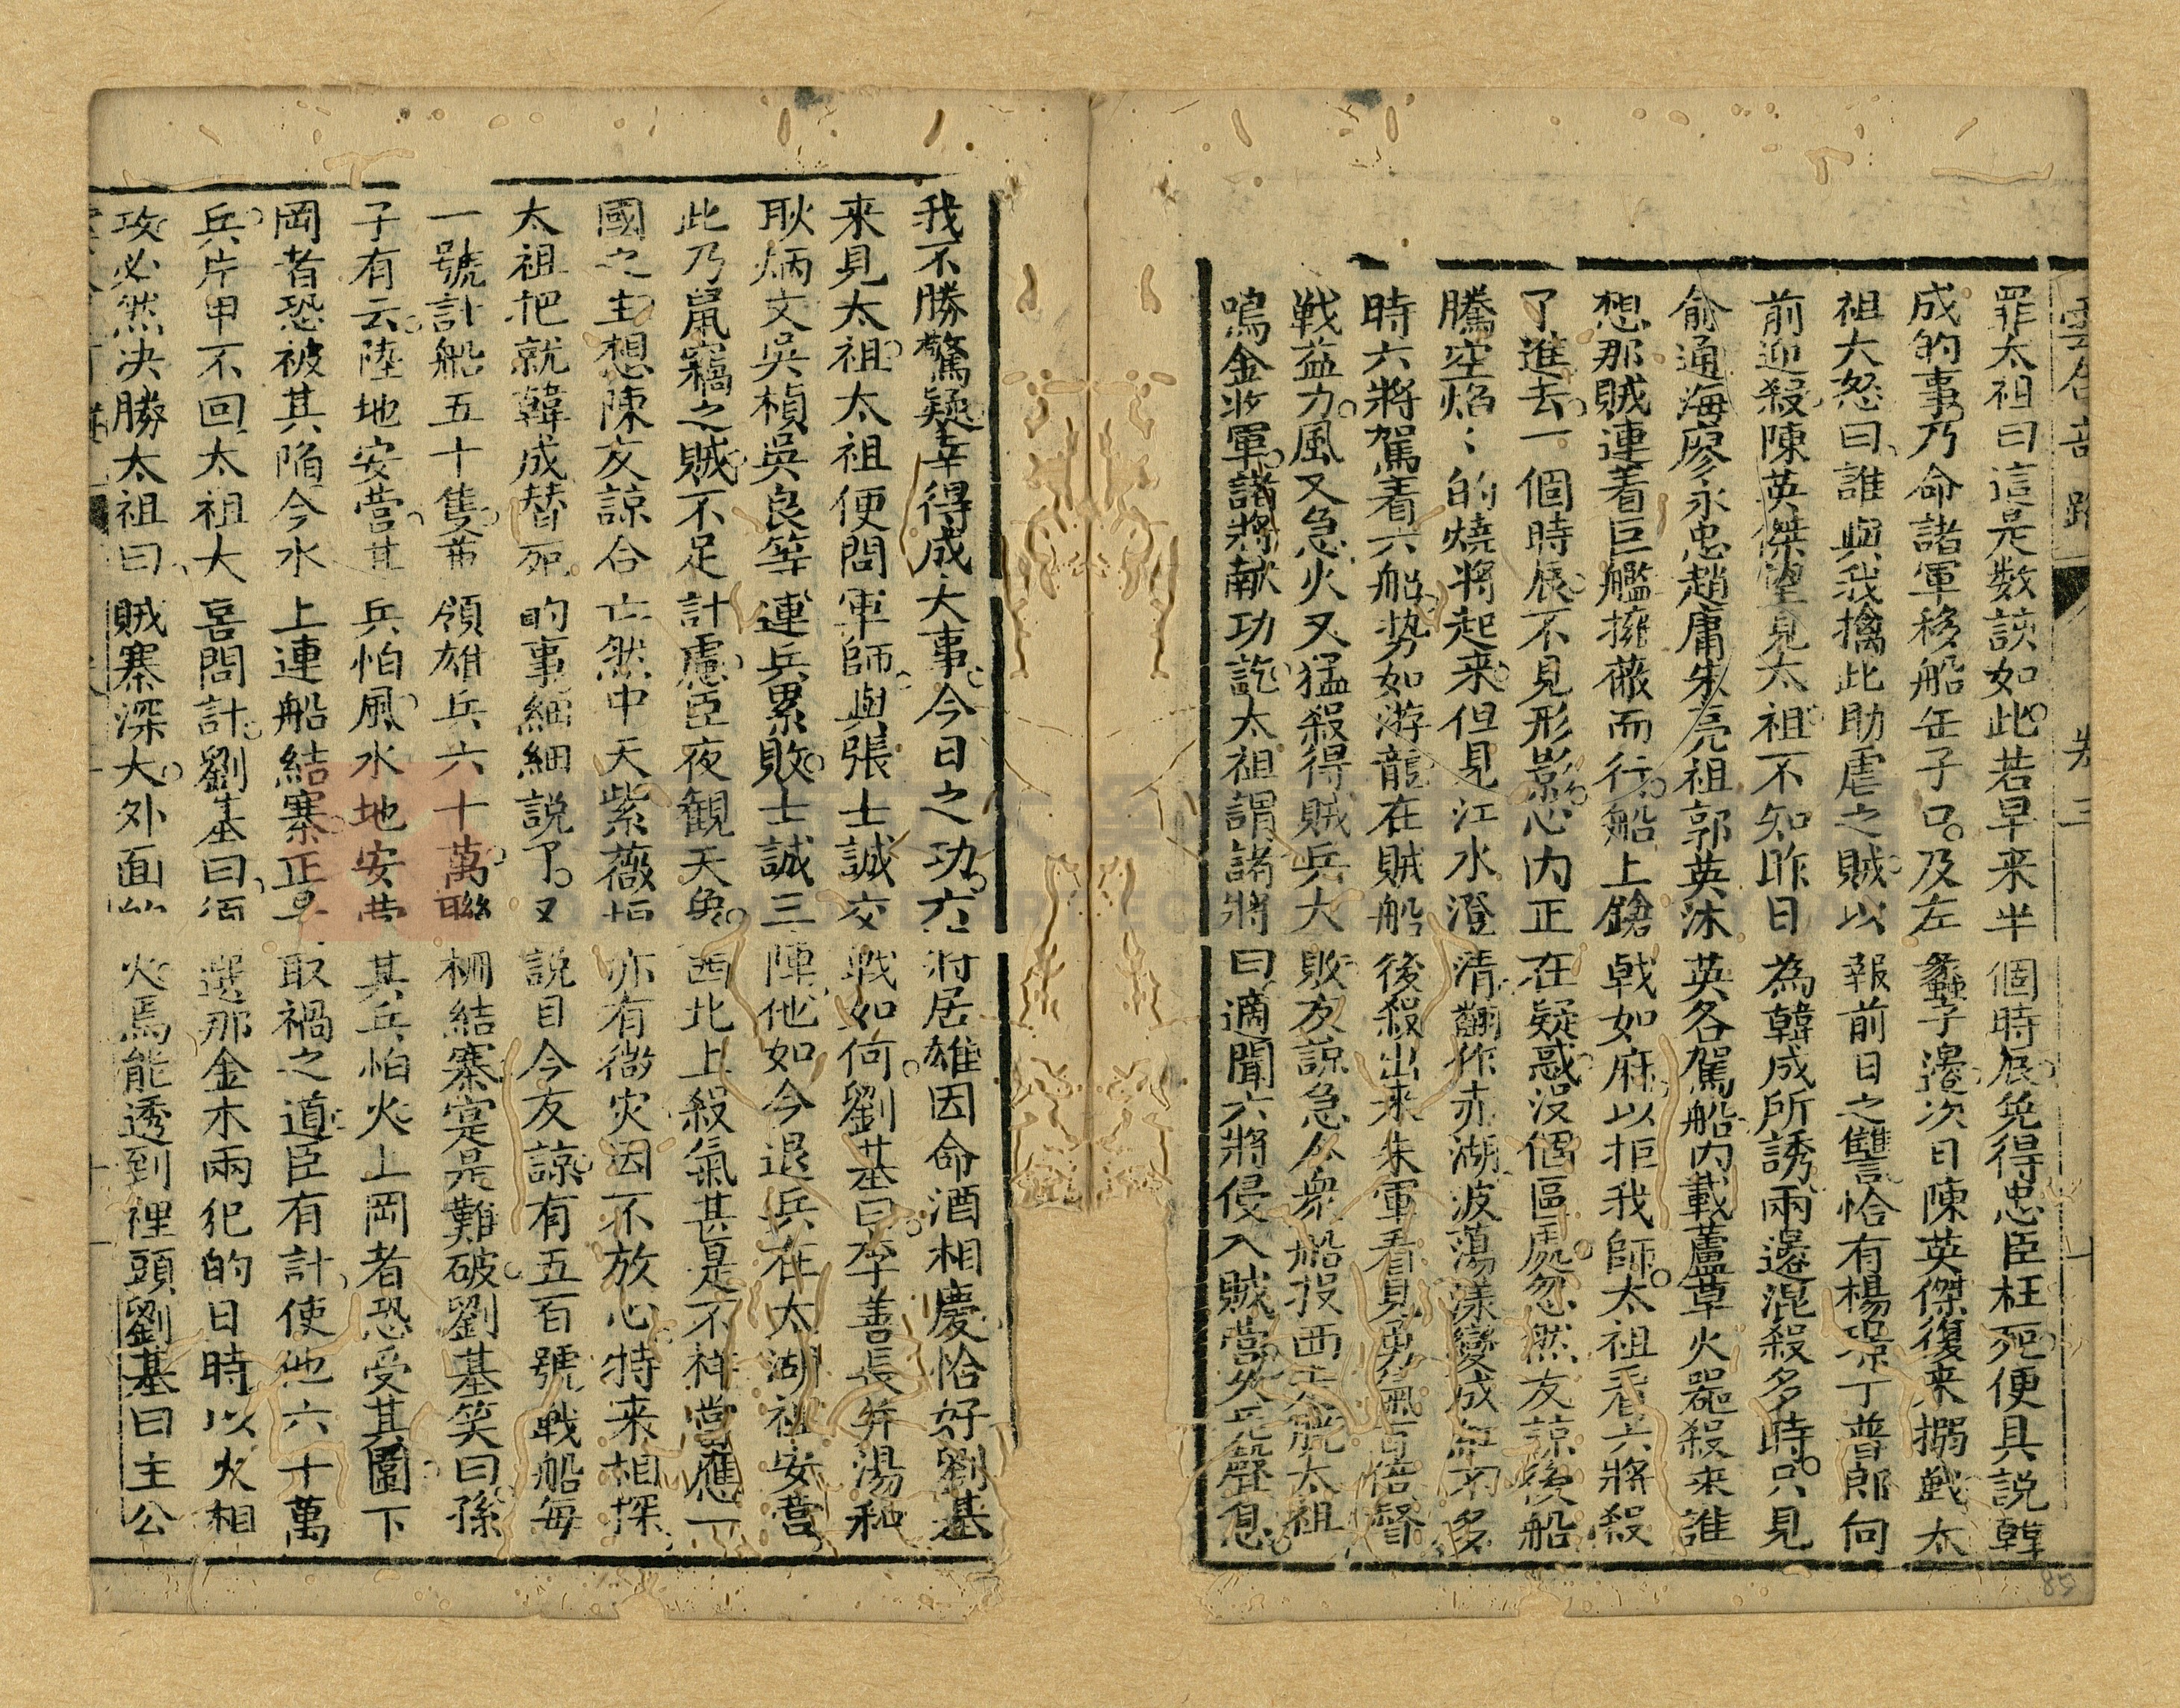 罪太祖曰這是数該如此若早来半個時辰免得忠臣枉死便具説韓
成的事乃命諸軍移船缶子口及左蠡子邉次日陳英傑復来搦戰太
祖大怒曰誰與我擒此助虐之賊以報前日之讐恰有楊璟丁普郎向
前迎殺陳英傑望見太祖不知昨日為韓成所誘兩邉混殺多時只見
俞通海廖永忠趙庸朱亮祖郭英沐英各駕船内載蘆草火噐殺来誰
想那賊連着巨艦擁蔽而行船上鎗戟如麻以拒我師太祖看六將殺
了進去一個時辰不見形影心内正在疑惑没個區處忽然友諒後船
騰空焰〻的燒將起来但見江水澄清翻作赤湖波蕩漾變成紅不多
時六將駕着六船势如游龍在賊船後殺出来朱軍看見勇氣百倍督
戰益力風又急火又猛殺得賊兵大敗友諒急令衆船投西走脱太祖
鳴金收軍諸將献功訖太祖謂諸將曰適聞六將侵入賊營久無聲息
我不勝驚疑幸得成大事今日之功六將居雄因命酒相慶恰好劉基
来見太祖太祖便問軍師與張士誠交戰如何劉基曰李善長并湯和
耿炳文吳楨吳良等連兵累敗士誠三陣他如今退兵在太湖祖安營
此乃鼠竊之賊不足計慮臣夜觀天象西北上殺氣甚是不祥當應一
國之主想陳友諒合亡然中天紫薇垣亦有微灾因不放心特来相探
太祖把就韓成替死的事細細説了又説目今友諒有五百號戰船每
一號計船五十隻帶領雄兵六十萬聯栅結寨寔是難破劉基笑曰孫
子有云陸地安營其兵怕風水地安營其兵怕火上岡者恐受其圍下
岡者恐被其陷今水上連船結寨正是取禍之道臣有計使他六十萬
兵片甲不回太祖大喜問計劉基曰須選那金木兩犯的日時以火相
攻必然决勝太祖曰賊寨深大外面放火焉能透到裡頭劉基曰主公